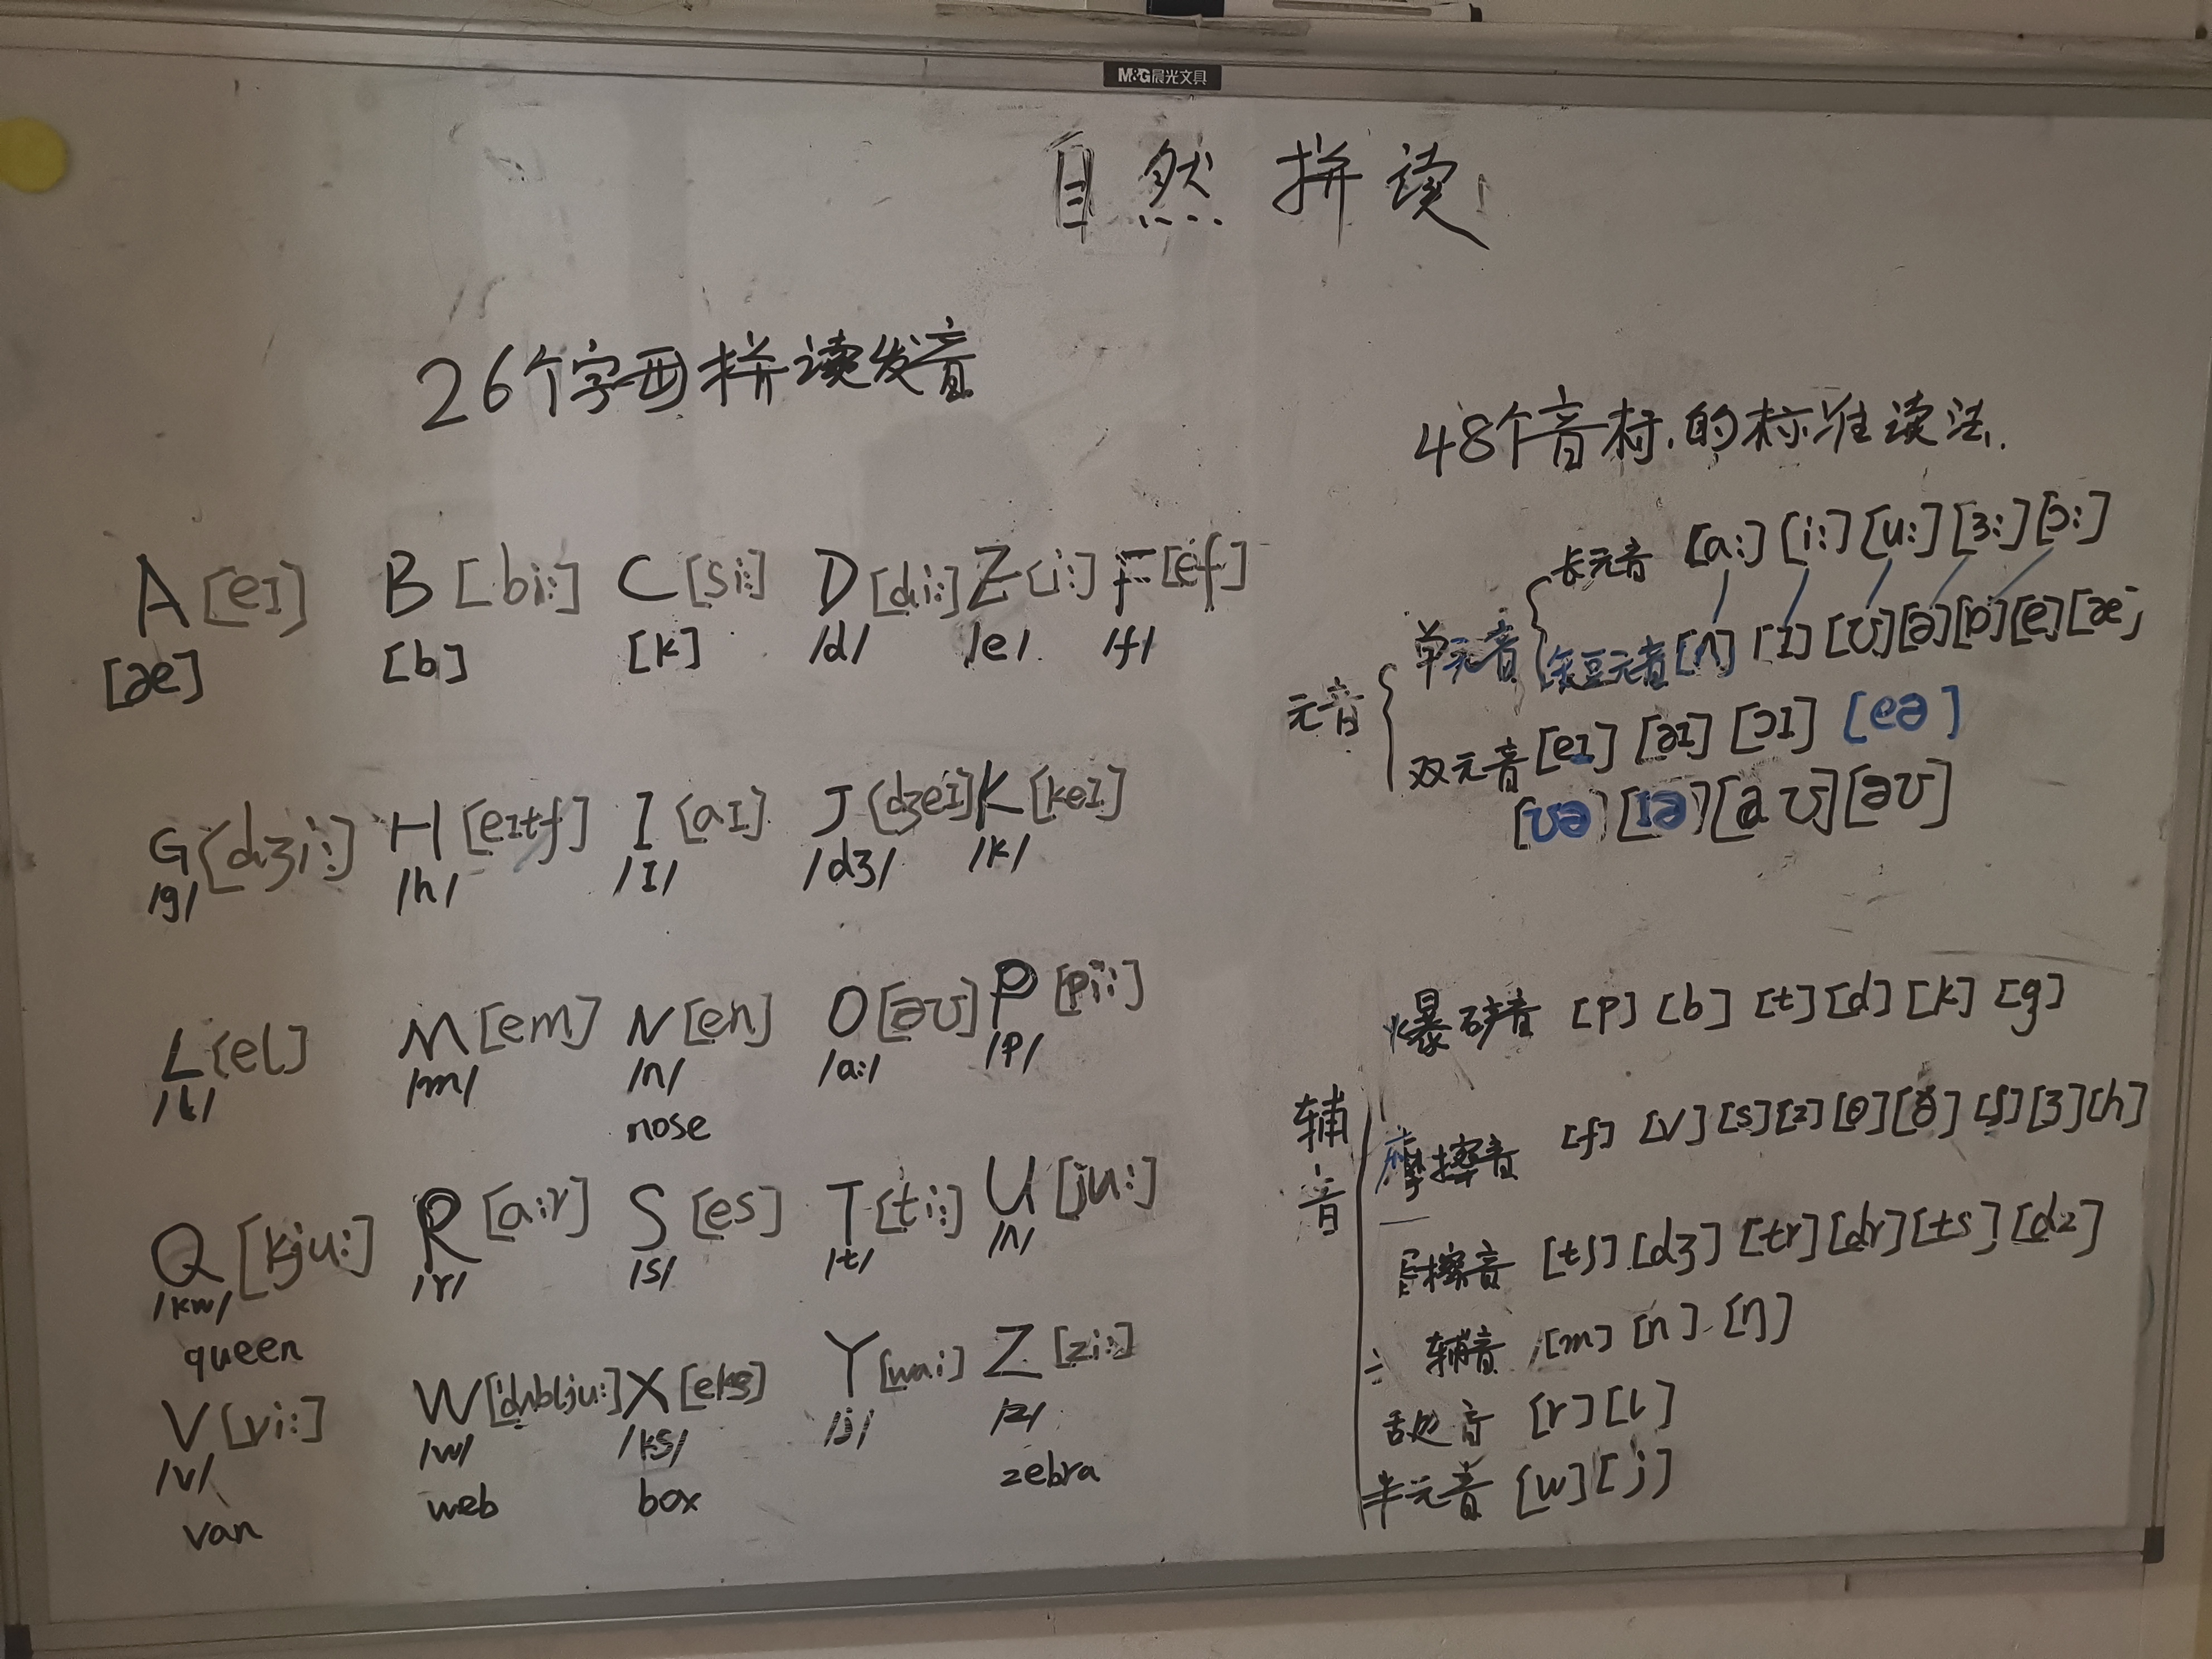 M&G晨光文具
自然拼读
26个字母拼读发音
A [eɪ] B [bi:] C [si:] D [di:] E [i:] F [ef]
[æ] [b] [k] /d/ /e/ /f/
G [dʒi:] H [eɪtʃ] I [aɪ] J [dʒeɪ] K [keɪ]
/g/ /h/ /ɪ/ /dʒ/ /k/
L [el] M [em] N [en] O [əʊ] P [pi:]
/l/ /m/ /n/ /a:/ /p/
nose
Q [kju:] R [a:r] S [es] T [ti:] U [ju:]
/kw/ /r/ /s/ /t/ /ʌ/
queen
V [vi:] W ['dʌblju:] X [eks] Y [wai] Z [zi:]
/v/ /w/ /ks/ /j/ /z/
van web box zebra
48个音标.的标准读法.
元音
单元音
长元音 [a:] [i:] [u:] [ɜ:] [ɔ:]
短元音 [ʌ] [ɪ] [ʊ] [ə] [ɒ] [e] [æ]
双元音 [eɪ] [aɪ] [ɔɪ] [eə]
[ʊə] [ɪə] [aʊ] [əʊ]
辅音
爆破音 [p] [b] [t] [d] [k] [g]
摩擦音 [f] [v] [s] [z] [θ] [ð] [ʃ] [ʒ] [h]
擦音 [tʃ] [dʒ] [tr] [dr] [ts] [dz]
辅音 [m] [n] [ŋ]
音 [r] [l]
半元音 [w] [j]